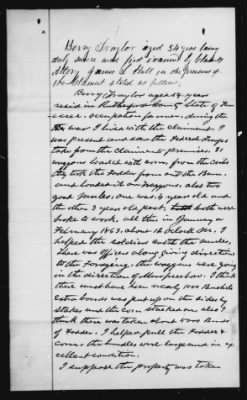 Berry Traylor aged 54 years being
duly sworn and first examined by
Atty James in the presence of
the Claimant stated as follows,
Berry Traylor aged 54 years
resid in Rutherford County State of Tenn
essee. occupation farmer, during the
the war I lived with the claimant, I
was present and saw the Federal troops
take from the claimants premises
waggons loaded with corn, from the crib
they took the Fodder from out the Barn
and loaded it on waggons, also two
good mules, one was 4 years old and
the other 3 years old past, both were
broke to work, all this in January or
February 1863. about 12 oclock, I
helped the soldiers with the mules,
there was officers along giving directions
to the Foraging, the waggons were going
in the direction of Murfreesboro. I think
there must have been nearly 100 Bushels
extra boards was put up on the sides by
stakes and the corn stacked on also I
think there was taken about 5000 Binds
of Fodder. I helped pull the Fodder &
corn. the bundles were large and in ex
cellent condition.
I suppose the property was taken